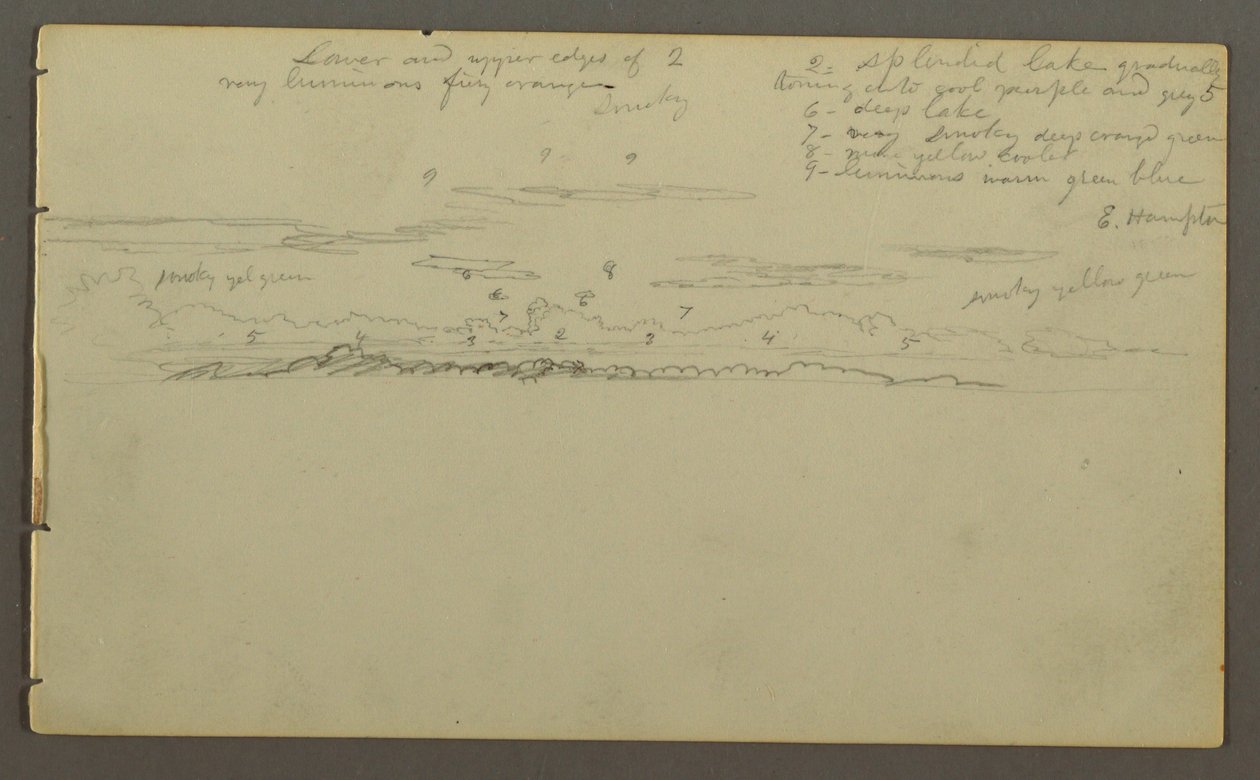 Lower and upper edges of 2
very luminous fiery orange
smoky
2- splendid lake gradually
toning into cool purple and grey 5
6- deep lake
7- very smoky deep orange green
8- more yellow cooler
9- luminous warm green blue
E. Hampton
9 9
9
smoky yel green
6 8
smoky yellow green
6 6
7 7
5 4 3 2 3 4 5